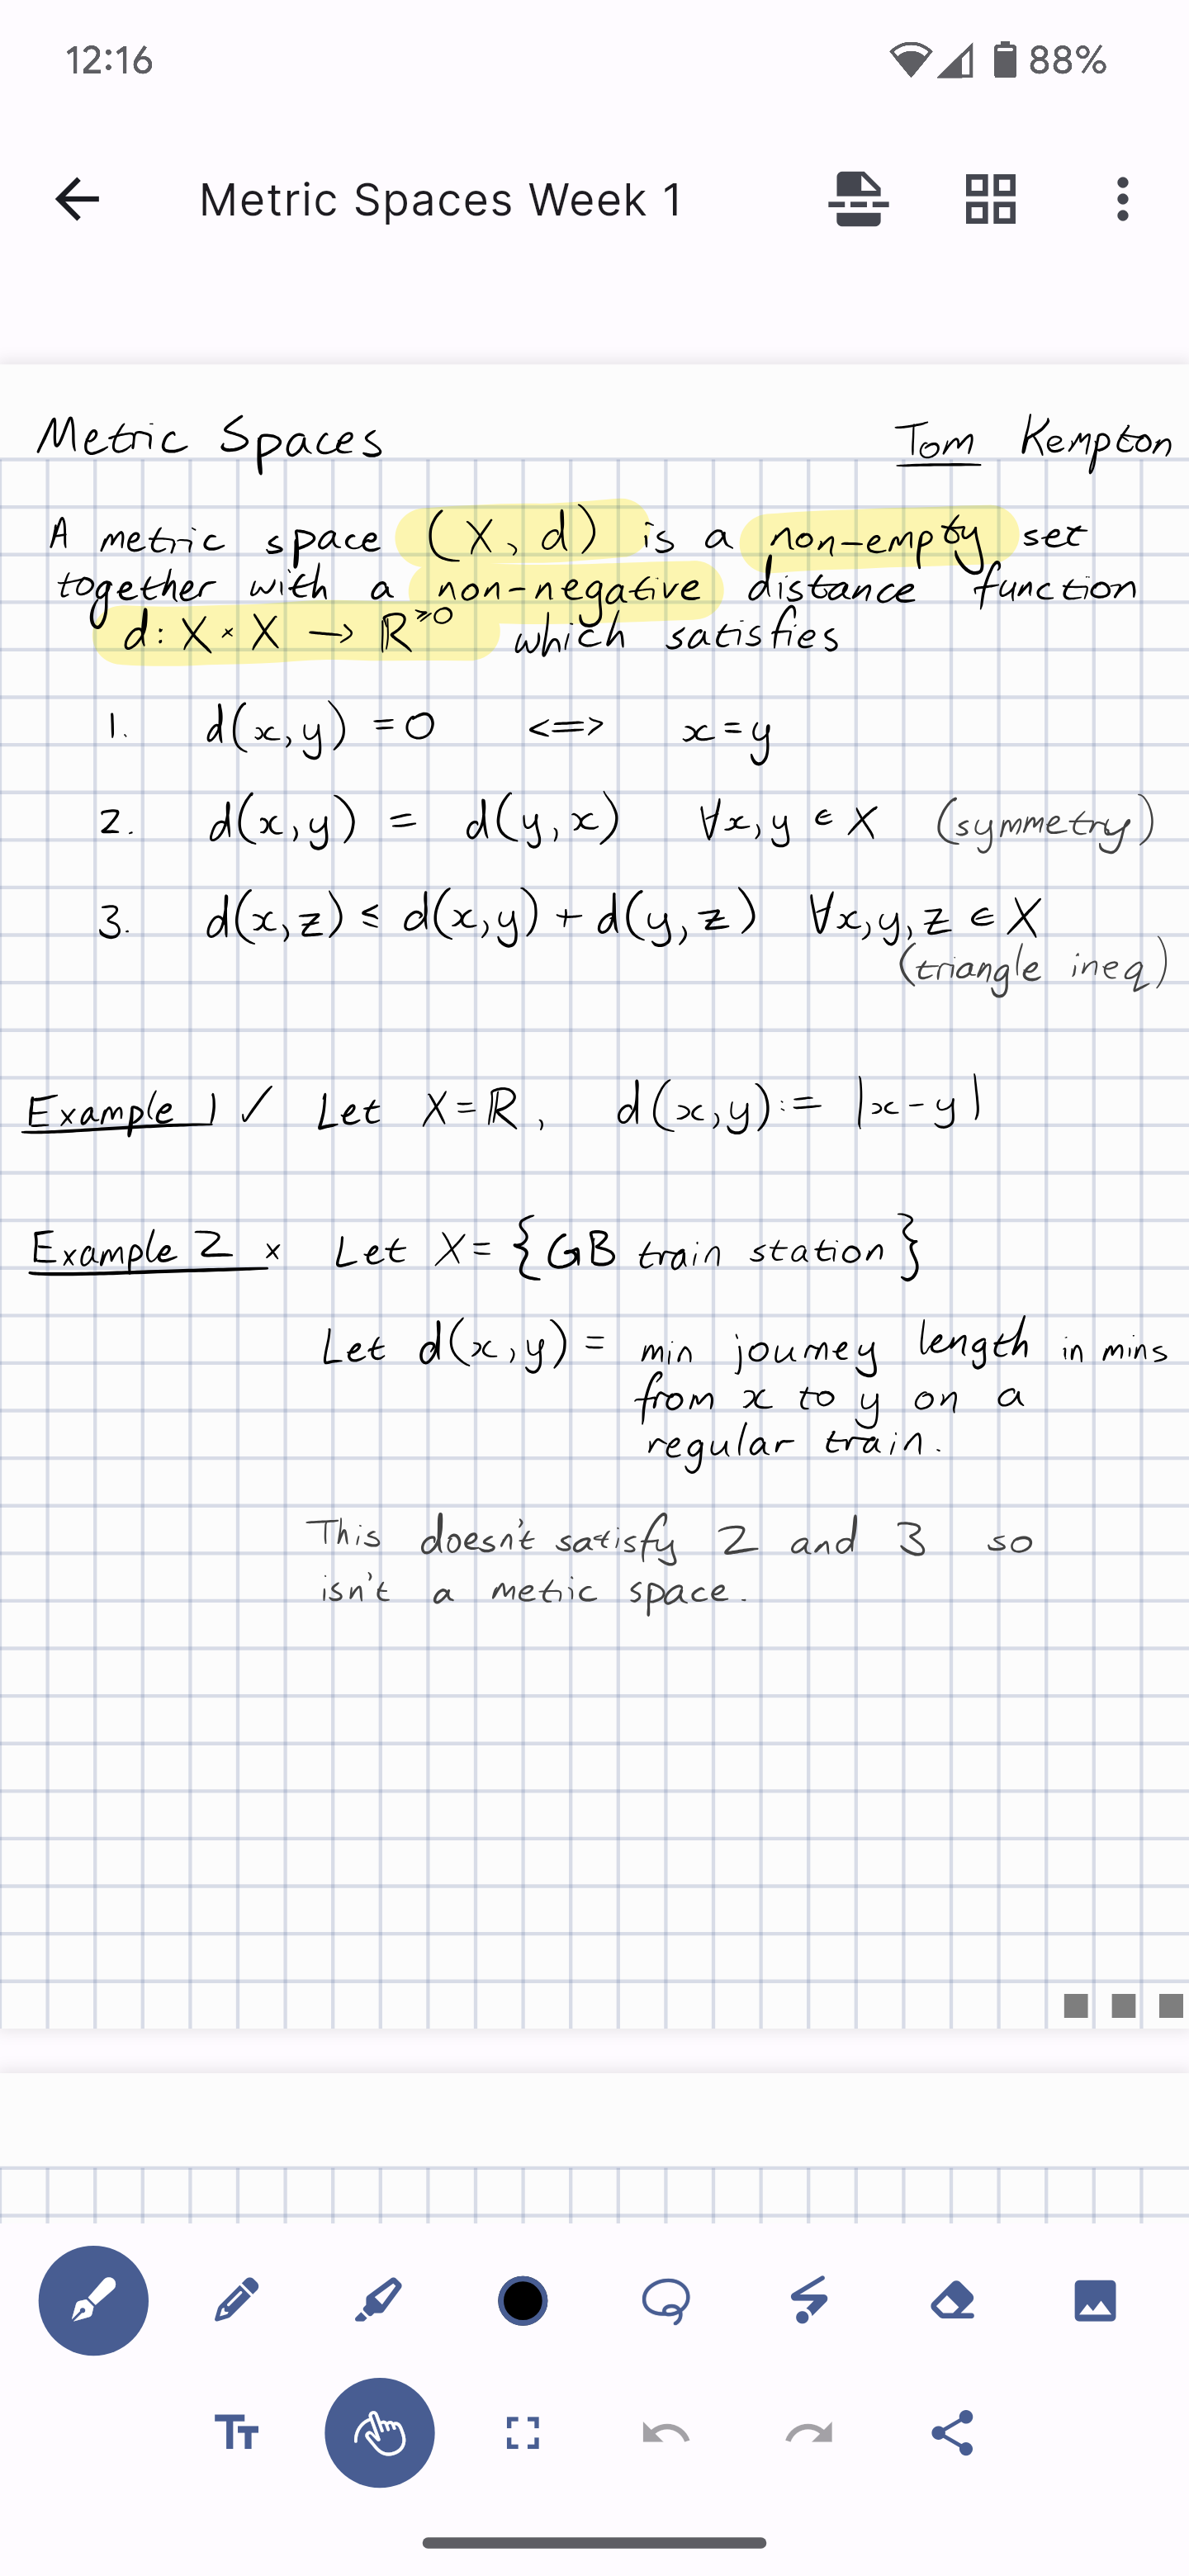 12:16 88%
Metric Spaces Week 1
Metric Spaces Tom Kempton
A metric space (X, d) is a non-empty set
together with a non-negative distance function
d: X × X → ℝ^≥0 which satisfies
1. d(x,y) = 0 <=> x=y
2. d(x,y) = d(y,x) ∀x,y ∈ X (symmetry)
3. d(x,z) ≤ d(x,y) + d(y,z) ∀x,y,z ∈ X
(triangle ineq)
Example 1 ✓ Let X=ℝ, d(x,y):= |x-y|
Example 2 × Let X= {GB train station}
Let d(x,y) = min journey length in mins
from x to y on a
regular train.
This doesn't satisfy 2 and 3 so
isn't a metic space.
TT